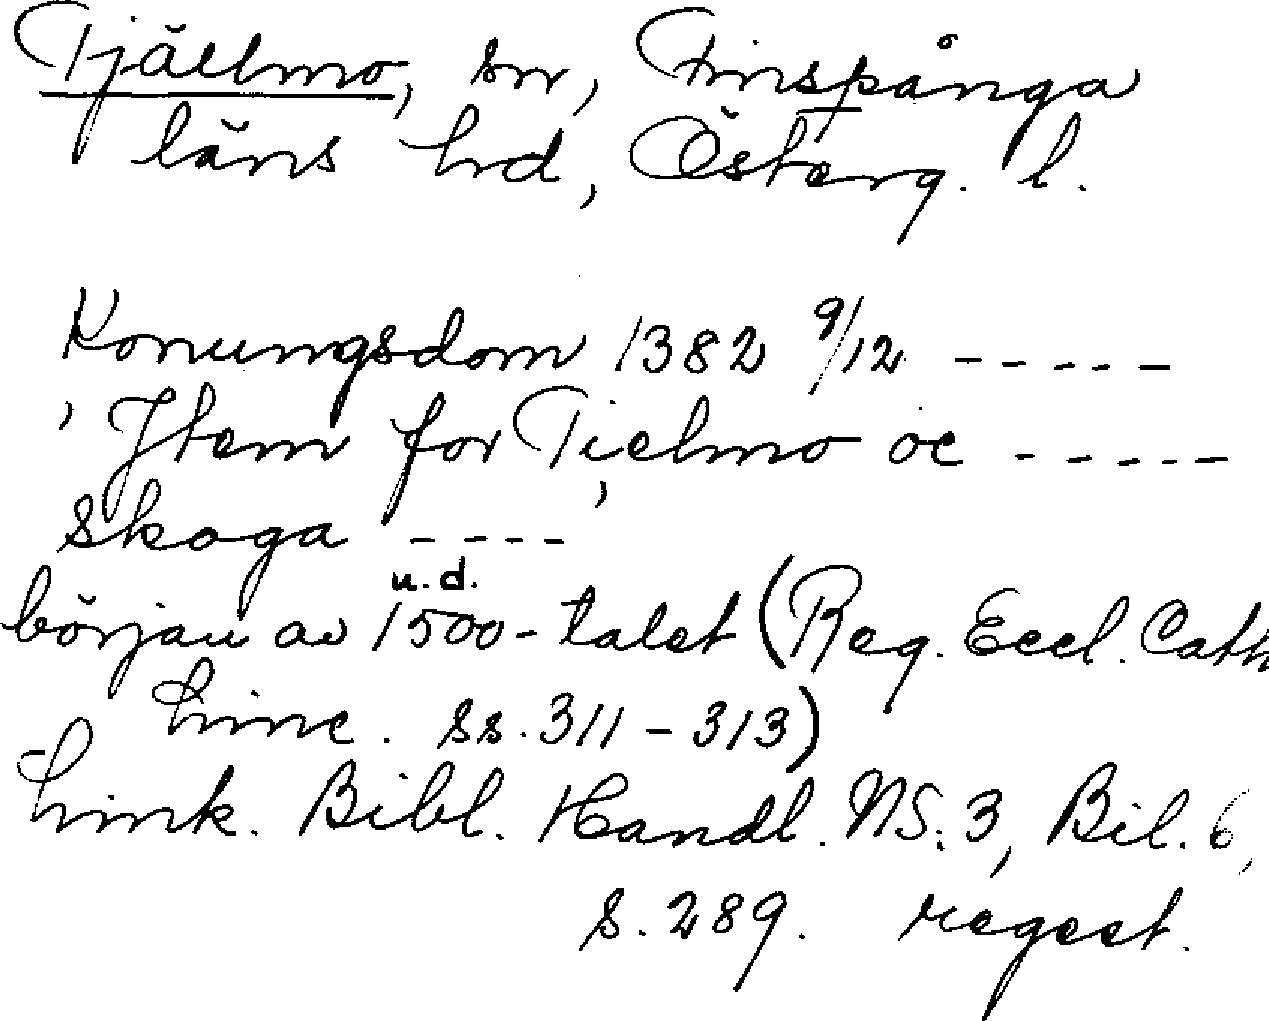 Tjällmo, sn, Finspånga
läns hd, Österg. l.
Konungsdom 1382 9/12 -----
Jtem for Tielmo oc -----
skoga ----
u. d.
början av 1500-talet (Reg. Eccl. Cath
Linc. ss. 311-313)
Link. Bibl. Handl. NS. 3, Bil. 6,
s. 289. regest.